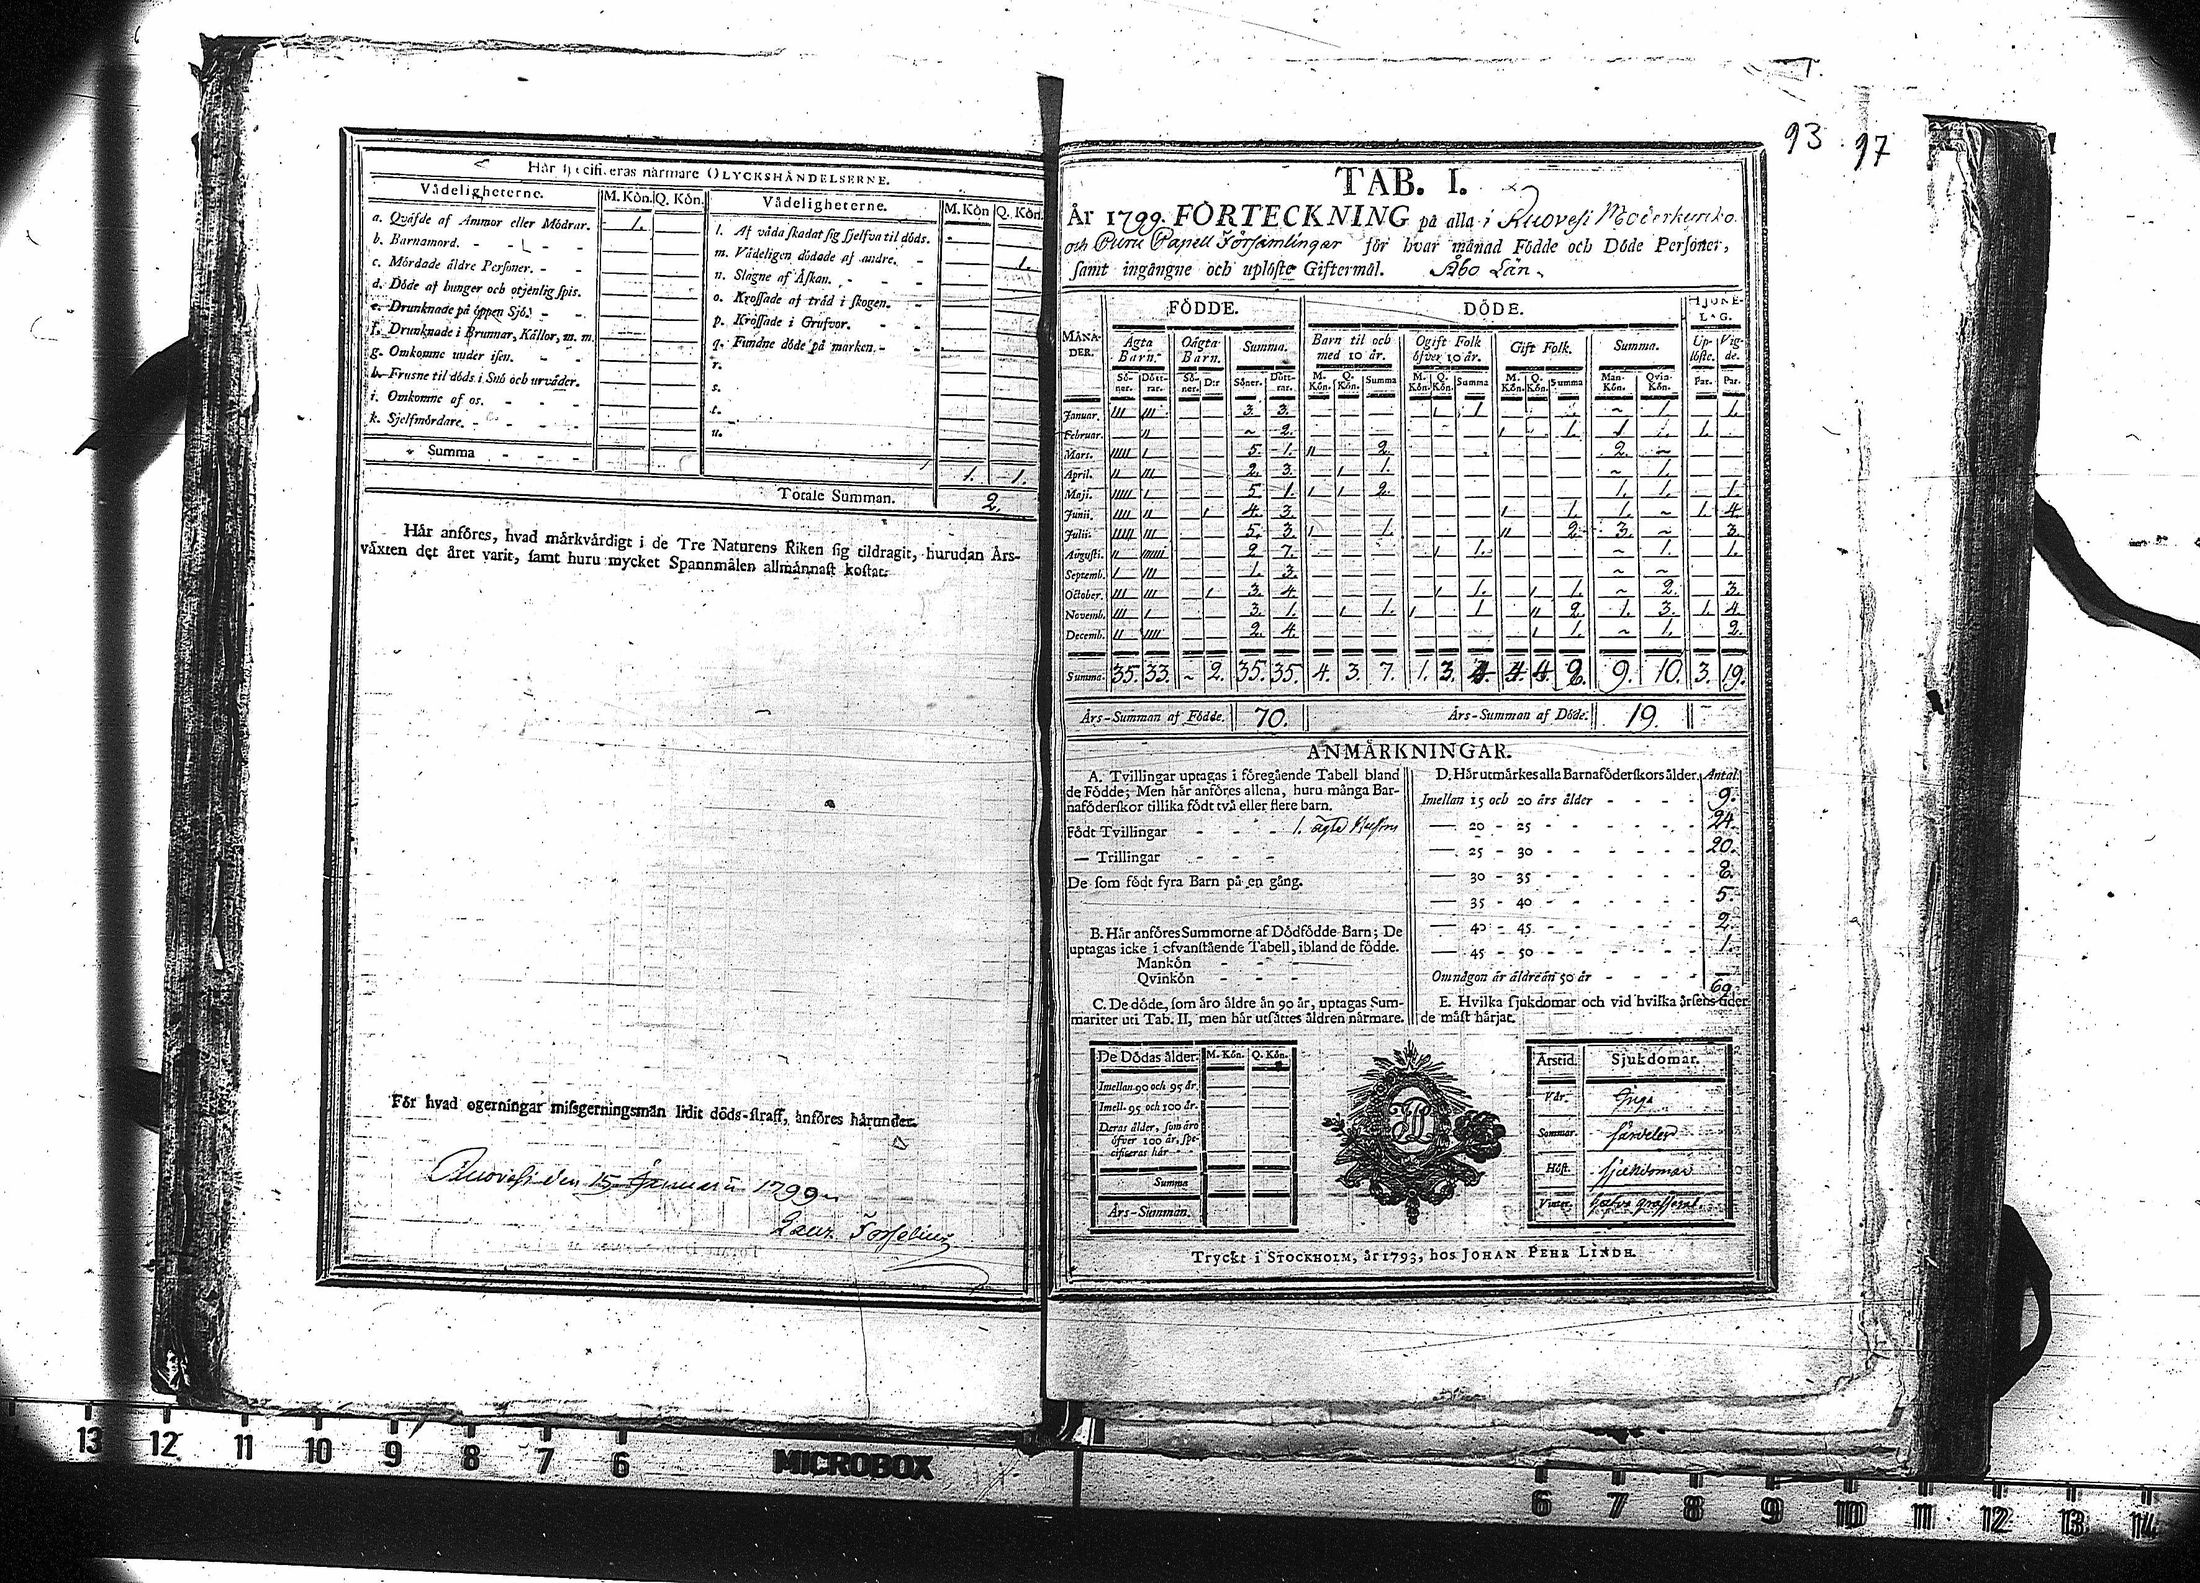 Här specificeras närmare OLYCKSHÄNDELSERNE.
Vådeligheterne. M. Kön. Q. Kön. Vådeligheterne. M. Kön Q. Kön.
a. Qväfde af Ammor eller Mödrar. 1.
b. Barnamord.
c. Mördade äldre Personer.
d. Döde af hunger och otjenlig spis.
e. Drunknade på öppen Sjö.
f. Drunknade i Brunnar, Källor, m. m.
g. Omkomne under isen.
h. Frusne til döds i Snö och urväder.
i. Omkomne af os.
k. Sjelfmördare.
Summa
l. Af våda skadat sig sjelfva til döds.
m. Vådeligen dödade af andre. 1.
n. Slagne af Åskan.
o. Krossade af träd i skogen.
p. Krossade i Grufvor.
q. Fundne döde på marken.
r.
s.
t.
u.
1. 1.
Totale Summan. 2.
Här anföres, hvad märkvärdigt i de Tre Naturens Riken sig tildragit, hurudan Års-
växten det året varit, samt huru mycket Spannmålen allmännast kostat.
För hvad ogerningar missgerningsmän lidit döds-straff, anföres härunder.
Ruovesi den 15 Januarii 1799
93 97
TAB. I.
År 1799. FÖRTECKNING på alla i Ruovesi Moderkyrko
och Församlingar för hvar månad Födde och Döde Personer,
samt ingångne och uplöste Giftermål. Åbo Län.
FÖDDE. DÖDE. HJONE-LAG.
MÅNADER. Ägta Barn. Oägta Barn. Summa. Barn til och med 10 år. Ogift Folk öfver 10 år. Gift Folk. Summa. Up-löste. Vig-de.
Sö-ner. Dött-rar. Sö-ner. D:r Söner. Dött-rar. M. Kön. Q. Kön. Summa M. Kön. Q. Kön. Summa M. Kön. Q. Kön. Summa Man-Kön. Qvin-Kön. Par. Par.
Januar. III III 3. 3. 1 1 1. ~ 1. 1.
Februar. II ~ 2. 1 1. 1. 1.
Mars. IIIII I 5. 1. II 2. 2. ~
April. II III 2. 3. 1 1. ~ 1.
Maji. IIIII I 5. 1. 1 1 2. 1. 1. 1.
Junii. IIII II 1 4. 3. 1 1. 1. ~ 1. 4.
Julii. IIIII III 5. 3. 1 1. II 2. 3. ~ 3.
Augusti. II IIIIIII 2. 7. 1 1. ~ 1. 1.
Septemb. I III 1. 3. ~ ~
October. III III 1 3. 4. 1 1. 1 1. ~ 2. 3.
Novemb. III I 3. 1. 1 1. 1 1 II 2. 1. 3. 1. 4.
Decemb. II IIII 2. 4. 1 1. ~ 1. 2.
Summa. 35. 33. ~ 2. 35. 35. 4. 3. 7. 1. 3. 4. 4. 4. 9. 10. 3. 19.
Års-Summan af Födde. 70. Års-Summan af Döde. 19.
ANMÄRKNINGAR.
A. Tvillingar uptagas i föregående Tabell bland
de Födde; Men här anföres allena, huru många Bar-
naföderskor tillika födt två eller flere barn.
Födt Tvillingar 1. ägta
— Trillingar
De som födt fyra Barn på en gång.
B. Här anföres Summorne af Dödfödde Barn; De
uptagas icke i ofvanstående Tabell, ibland de födde.
Mankön
Qvinkön
C. De döde, som äro äldre än 90 år, uptagas Sum-
mariter uti Tab. II, men här utsättes åldren närmare.
D. Här utmärkes alla Barnaföderskors ålder. Antal.
Imellan 15 och 20 års ålder 9.
— 20 - 25 24.
— 25 - 30 20.
— 30 - 35 8.
— 35 - 40 5.
— 40 - 45 2.
— 45 - 50 1.
Om någon är äldre än 50 år —
69.
E. Hvilka sjukdomar och vid hvilka årsens tider
de mäst härjat.
De Dödas ålder. M. Kön. Q. Kön.
Imellan 90 och 95 år.
Imell. 95 och 100 år.
Deras ålder, som äro
öfver 100 år, spe-
cificeras här
Summa
Års-Summan.
Årstid. Sjukdomar.
Vår. Inga
Sommar. särdeles
Höst. sjukdomar
Vinter. hafva grasserat.
Tryckt i STOCKHOLM, år 1793, hos JOHAN PEHR LINDH.
13 12 11 10 9 8 7 6 MICROBOX 6 7 8 9 10 11 12 13 14